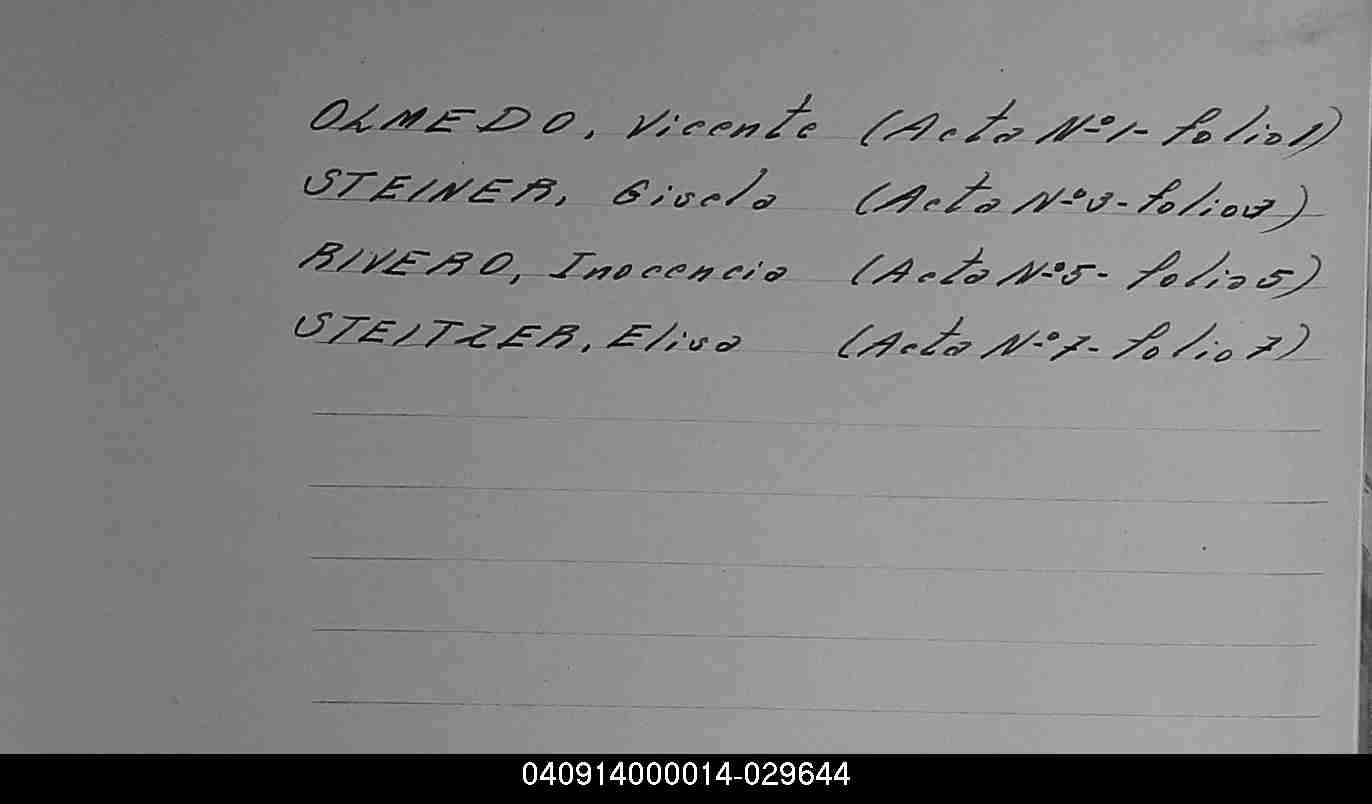 OLMEDO, Vicente (Acta Nº1- folio1)
STEINER, Gisela (Acta Nº3- folio3)
RIVERO, Inocencia (Acta Nº5- folio5)
STEITZER, Elisa (Acta Nº7- folio7)
040914000014-029644